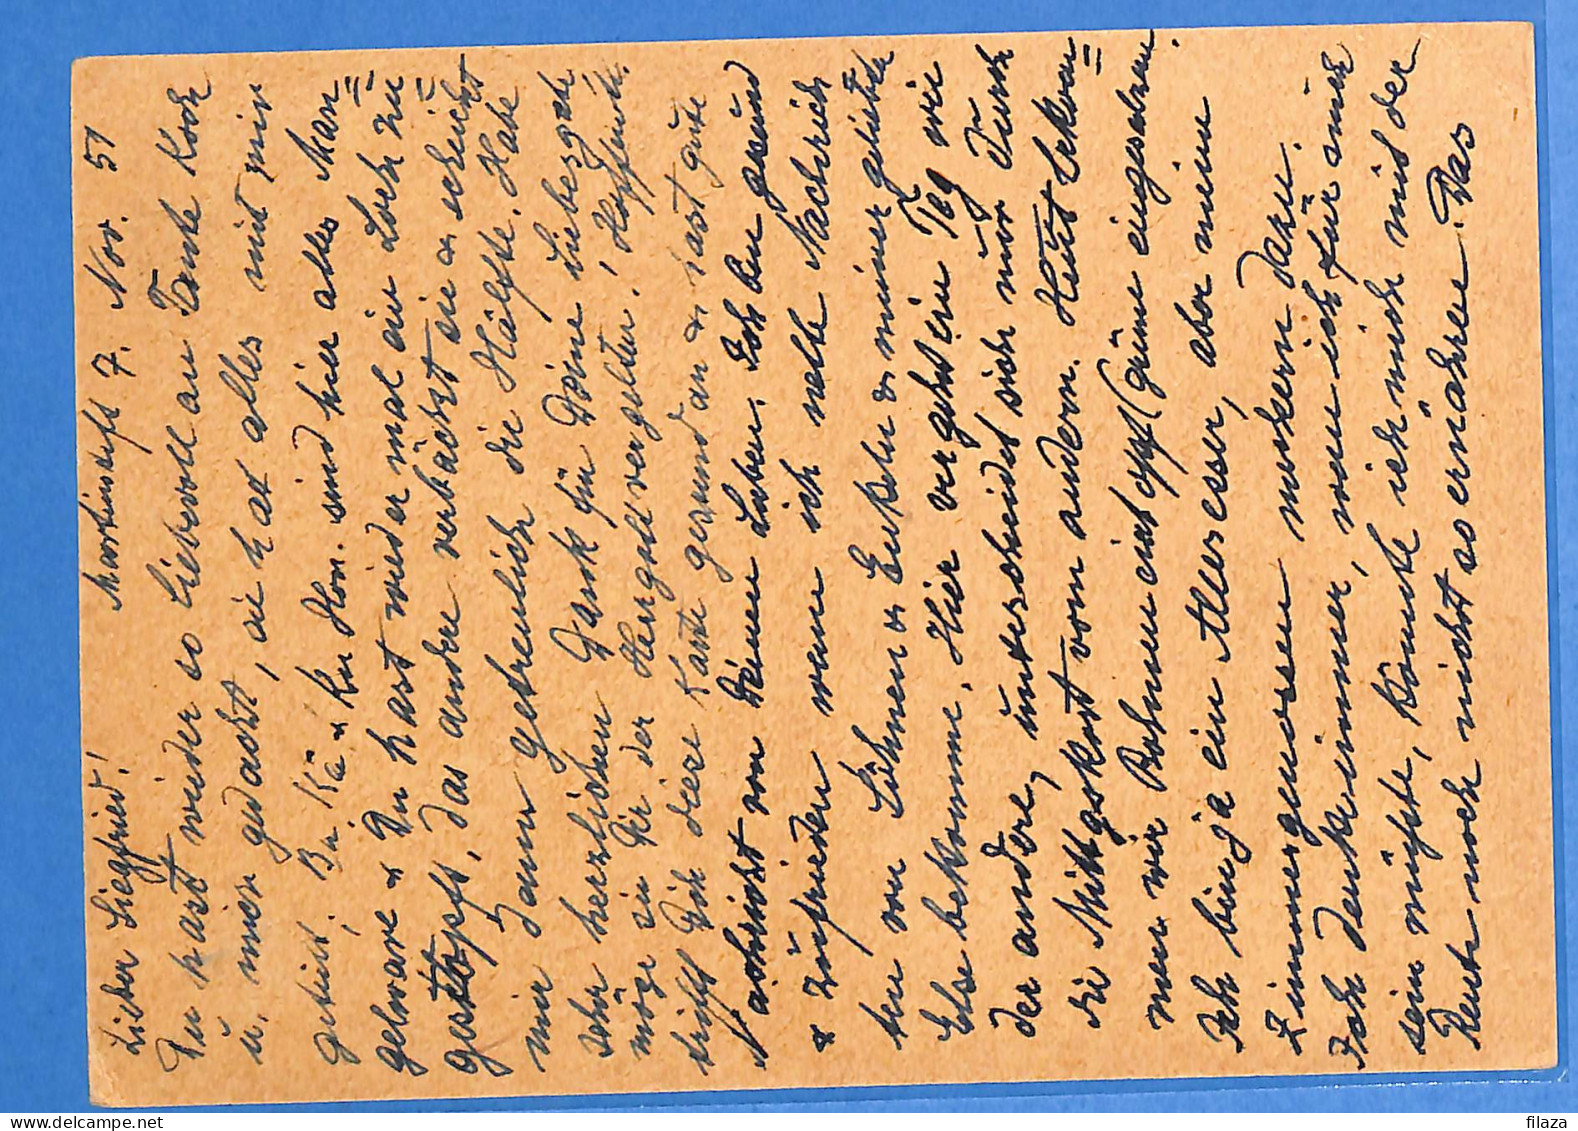 Martinduft 7. Nov. 51
Lieber Siegfried!
Du hast wieder so liebevoll an Tante Koch
u. mich gedacht, sie hat alles mit mir
geteilt. Bu Kä u. Ku Hon. sind hier alles Man=
gelware u Du hast wieder mal ein Loch zu
gestopft, das andere verbächst sie u schickt
mir dann getreulich die Hälfte. Habe
sehr herzlichen Dank für Deine Liebesgabe
möge sie Dir der Herrgott vergelten! Hoffentl.
trifft Dich diese Karte gesund an u hast gute
Nachricht von Deinen Lieben. Ich bin gesund
u zufrieden wenn ich nette Nachrich
ten von Söhnen u Enkeln u meiner geliebten
Else bekomme. Hier vergeht ein Tag wie
der andere, unterscheidet sich nur durch
die Mittagskost vom andern. Heut bekom=
men wir Bohneneintopf (Grüne eingesalzen.
Ich bin ja ein Allesesser, aber meine
Zimmergenossen meckern dazu.
Ich denke immer, wenn ich für mich
sein müsste, könnte ich mich mit der
Rente noch nicht so ernähren. Das
filaza